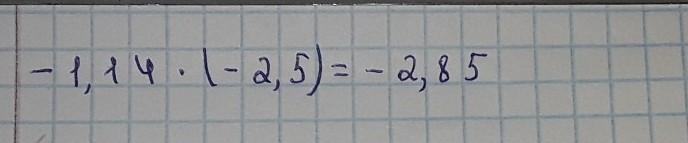 - 1,14 · (- 2,5) = - 2,85